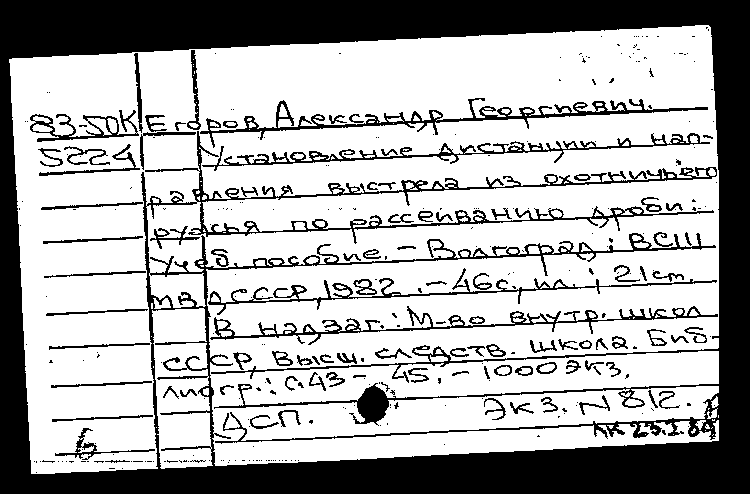 83-50К Егоров, Александр Георгиевич.
5224 Установление дистанции и нап-
равления выстрела из охотничьего
ружья по рассеиванию дроби:
Учеб. пособие. – Волгоград: ВСШ
МВД СССР, 1982. – 46 с., ил.; 21 см.
В надзаг.: М-во внутр. школ
СССР, Высш. следств. школа. Биб-
лиогр.: с. 43 – 45. – 1000 экз.
ДСП. Экз. N 812.
6 КК 25.I.84